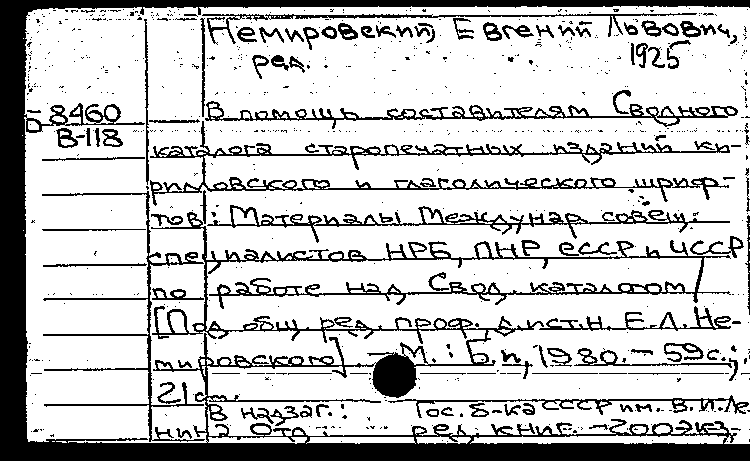 Немировский, Евгений Львович,
ред. 1925
Б 8460
В-118
В помощь составителям Сводного
каталога старопечатных изданий ки-
рилловского и глаголического шриф-
тов: Материалы Междунар. совещ.
специалистов НРБ, ПНР, СССР и ЧССР
по работе над Свод. каталогом /
[Под общ. ред. проф., д.ист.н. Е.Л. Не-
мировского]. – М.: Б.и, 1980. – 59 с.;
21 см.
В надзаг.: Гос. б-ка СССР им. В.И. Ле
нина. Отд: ред. книг. – 200 экз.